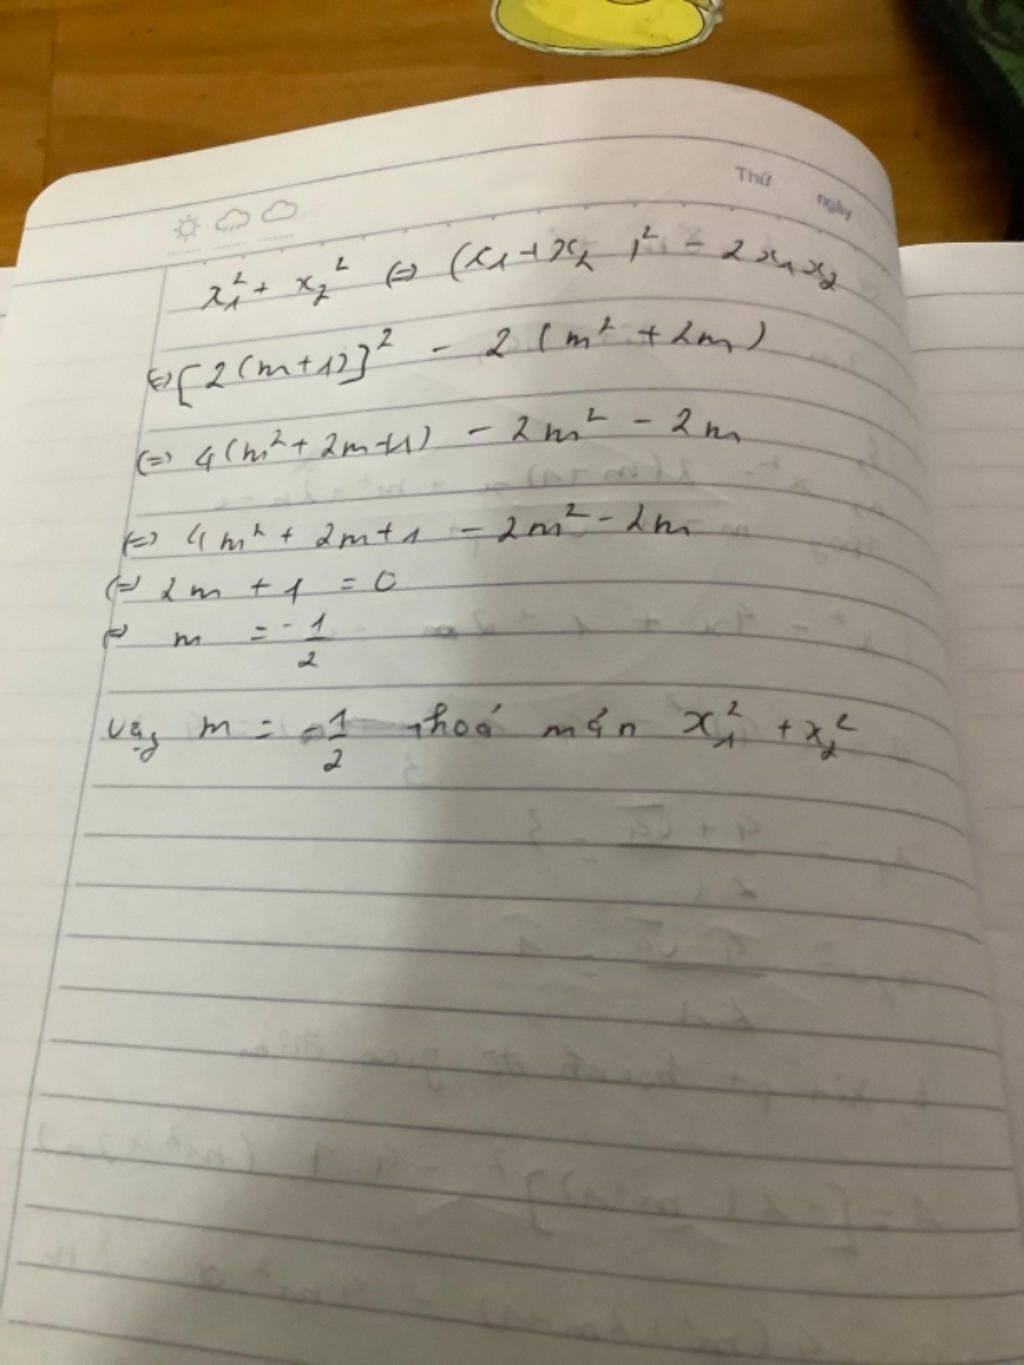 Thứ ngày
x₁² + x₂² ⇔ (x₁ + x₂)² - 2x₁x₂
⇔ [2(m+1)]² - 2(m² + 2m)
⇔ 4(m² + 2m+1) - 2m² - 2m
⇔ 4m² + 2m+1 - 2m² - 2m
⇔ 2m + 1 = 0
⇔ m = -1/2
Vậy m = -1/2 thoả mãn x₁² + x₂²